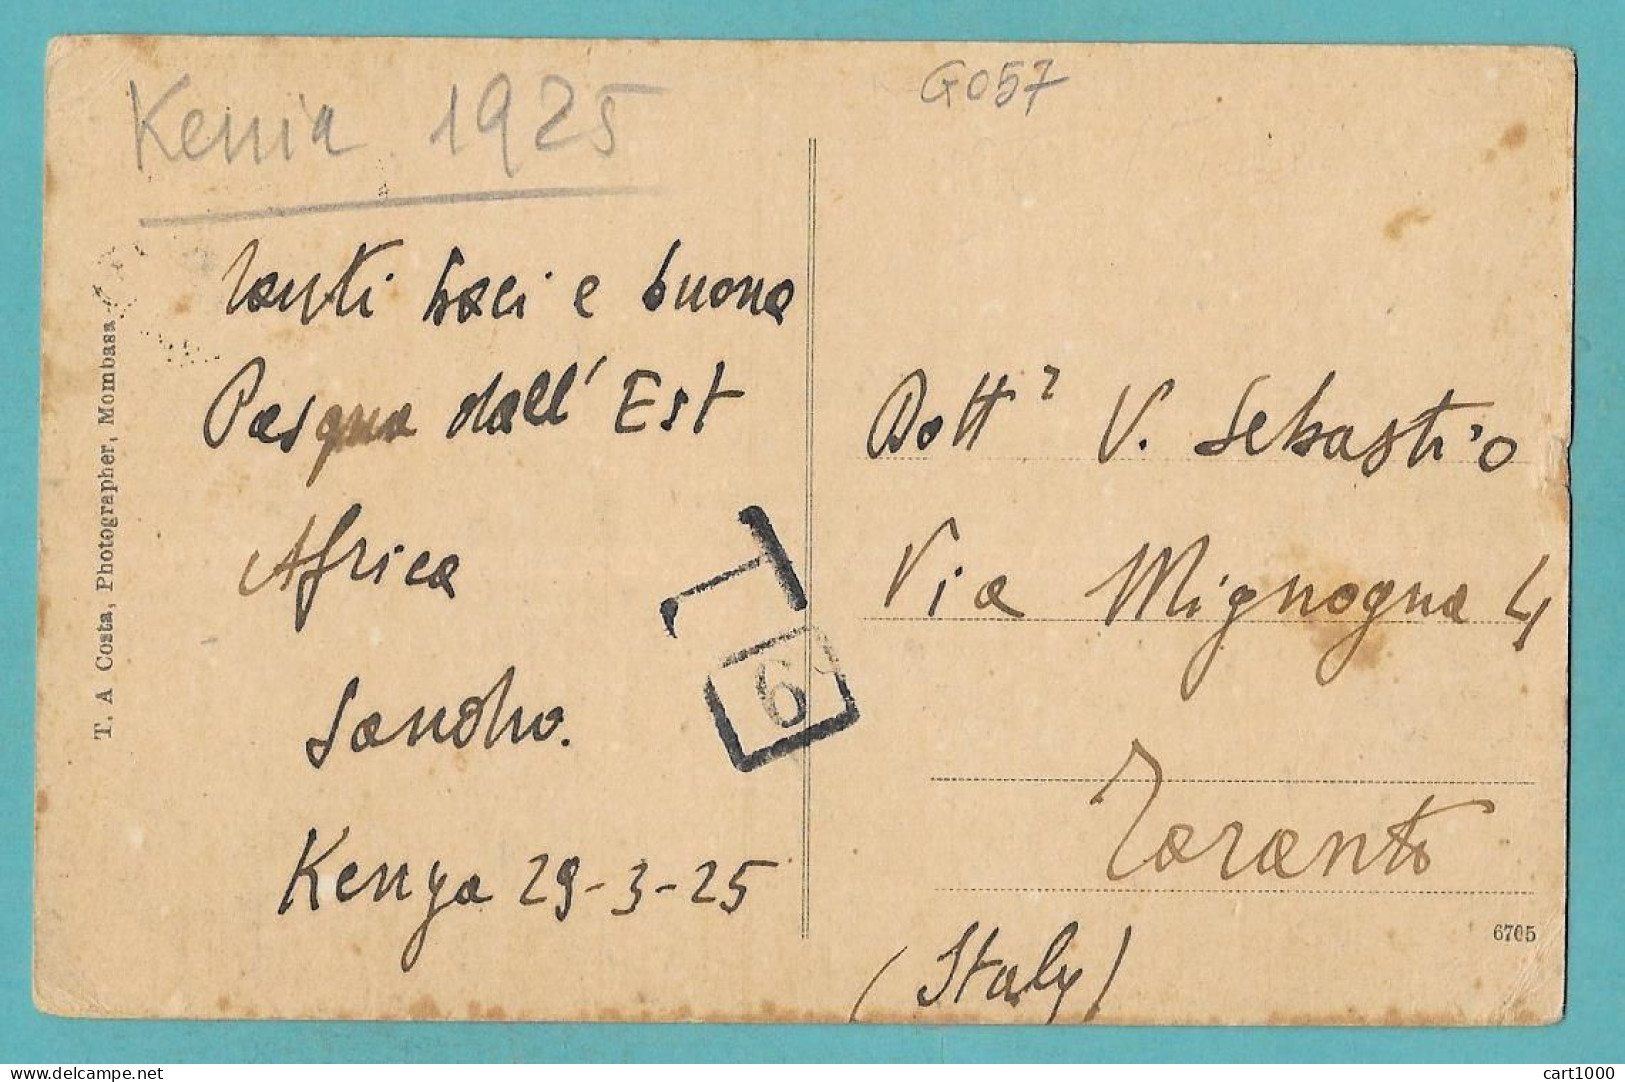 Kenia 1925
G057
Tanti baci e buona
Pasqua dall' Est
Africa
Sandro.
Kenya 29-3-25
T. A Costa, Photographer, Mombasa
T
6
Dott. V. Sebastio
Via Mignogna 4
Taranto
(Italy)
6705
delcampe.net
cart1000